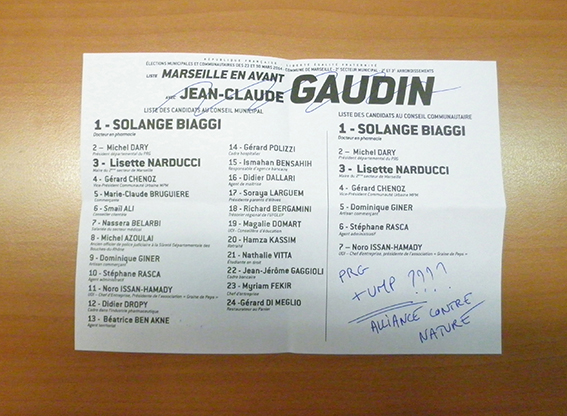 RÉPUBLIQUE FRANÇAISE - LIBERTÉ ÉGALITÉ FRATERNITÉ
ÉLECTIONS MUNICIPALES ET COMMUNAUTAIRES DES 23 ET 30 MARS 2014 - COMMUNE DE MARSEILLE - 2e SECTEUR MUNICIPAL - 2e ET 3e ARRONDISSEMENTS
LISTE MARSEILLE EN AVANT
AVEC JEAN-CLAUDE GAUDIN
LISTE DES CANDIDATS AU CONSEIL MUNICIPAL
1 - SOLANGE BIAGGI
Docteur en pharmacie
2 – Michel DARY
Président départemental du PRG
3 - Lisette NARDUCCI
Maire du 2ème secteur de Marseille
4 - Gérard CHENOZ
Vice-Président Communauté Urbaine MPM
5 - Marie-Claude BRUGUIERE
Commerçante
6 - Smaïl ALI
Conseiller clientèle
7 - Nassera BELARBI
Salariée du secteur médical
8 - Michel AZOULAI
Ancien officier de police judiciaire à la Sûreté Départementale des Bouches-du-Rhône
9 - Dominique GINER
Artisan commerçant
10 - Stéphane RASCA
Agent administratif
11 - Noro ISSAN-HAMADY
UDI - Chef d'entreprise, Présidente de l'association « Graine de Pays »
12 - Didier DROPY
Cadre dans l'industrie pharmaceutique
13 - Béatrice BEN AKNE
Agent territorial
14 - Gérard POLIZZI
Cadre hospitalier
15 - Ismahan BENSAHIH
Responsable d'agence bancaire
16 - Didier DALLARI
Agent de maîtrise
17 - Soraya LARGUEM
Présidente parents d'élèves
18 - Richard BERGAMINI
Trésorier régional de l'UFOLEP
19 - Magalie DOMART
UDI - Conseillère d'éducation
20 - Hamza KASSIM
Retraité
21 - Nathalie VITTA
Etudiante en droit
22 - Jean-Jérôme GAGGIOLI
Cadre bancaire
23 - Myriam FEKIR
Chef d'entreprise
24 - Gérard DI MEGLIO
Restaurateur au Panier
LISTE DES CANDIDATS AU CONSEIL COMMUNAUTAIRE
1 - SOLANGE BIAGGI
Docteur en pharmacie
2 – Michel DARY
Président départemental du PRG
3 - Lisette NARDUCCI
Maire du 2ème secteur de Marseille
4 - Gérard CHENOZ
Vice-Président Communauté Urbaine MPM
5 - Dominique GINER
Artisan commerçant
6 - Stéphane RASCA
Agent administratif
7 - Noro ISSAN-HAMADY
UDI - Chef d'entreprise, Présidente de l'association « Graine de Pays »
PRG
+ UMP ????
ALLIANCE CONTRE
NATURE